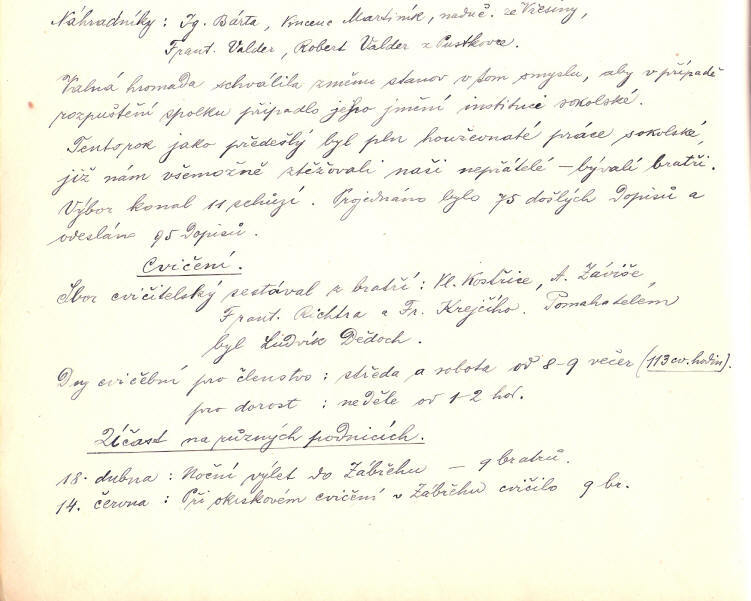 Náhradníky : Ig. Bárta, Vincenc Martiník, naduč. ze Vřesiny,
Frant. Valder, Robert Valder z Pustkovce.
Valná hromada schválila změnu stanov v tom smyslu, aby v případě
rozpuštění spolku připadlo jeho jmění instituci sokolské.
Tento rok jako předešlý byl pln houževnaté práce sokolské,
již nám všemožně ztěžovali naši nepřátelé – bývalí bratři.
Výbor konal 11 schůzí. Projednáno bylo 75 došlých dopisů a
odesláno 95 dopisů.
Cvičení.
Sbor cvičitelský sestával z bratří : Vl. Kostřice, A. Záviše,
Frant. Richtra a Fr. Krejčího. Pomahatelem
byl Ludvík Dědoch.
Dny cvičební pro členstvo : středa a sobota od 8-9 večer (113 cv. hodin).
pro dorost : neděle od 1-2 hod.
Účast na různých podnicích.
18. dubna : Noční výlet do Zábřehu – 9 bratrů.
14. června : Při okrskovém cvičení v Zábřehu cvičilo 9 br.